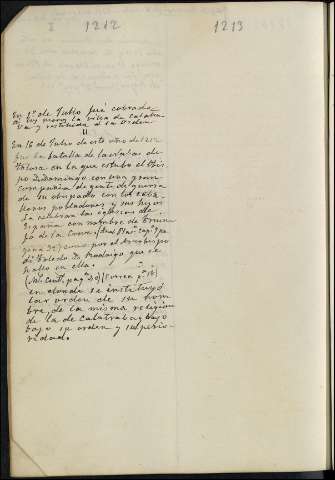 I 1212 1213
En 1º de Julio fué cobrada
a los moros la villa de Calatra-
va y restituida a la Orden
"
En 16 de Julio de este año de 1212
fue la batalla de las Navas de
Tolosa en la que estubo el Obis-
po D. Domingo con una gran
compañia de gente de guerra
de su obispado con los caba-
lleros pobladores y sus hijos
La celebran las iglesias de
España con nombre de triun-
fo de la Cruz.
como por el Arzobispo
de Toledo D. Rodrigo que se
hallo en ella.
en donde se instituyó
la orden de su nom-
bre, de la misma religion
de la de Calatraba y bajo
bajo su orden y superio-
ridad.